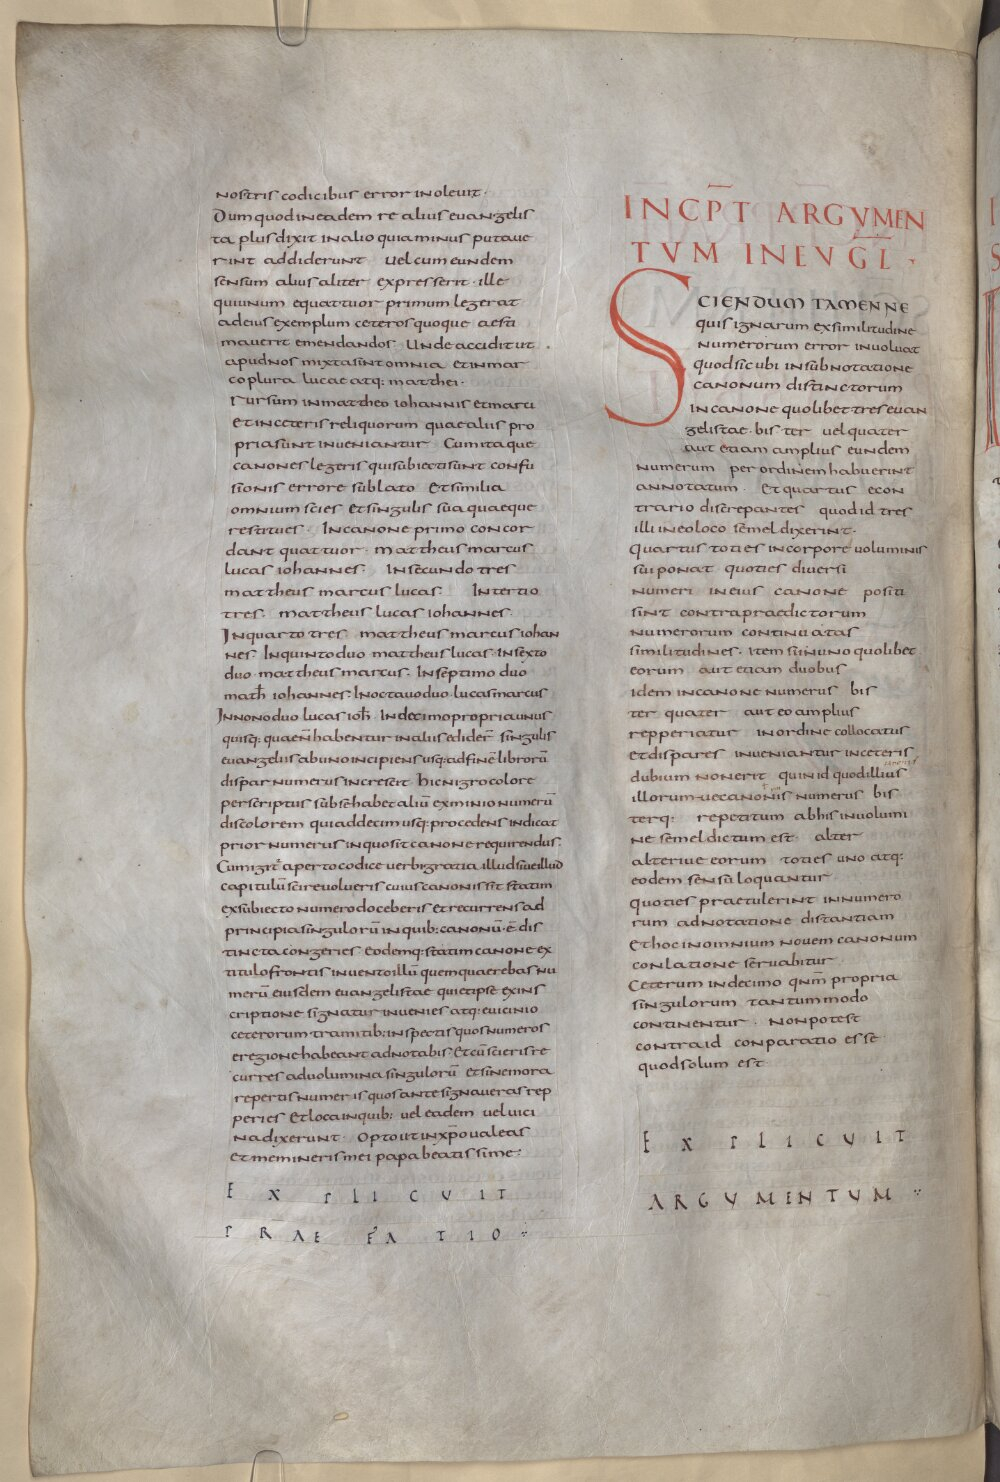 nostris codicibus error inoleuit·
Dum quod in eadem re alius euangelis
ta plus dixit in alio quia minus putaue
rint addiderunt Vel cum eundem
sensum alius aliter expresserit· ille
qui unum e quattuor primum legerat
ad eius exemplum ceteros quoque aesti
mauerit emendandos· Unde accidit ut
apud nos mixta sint omnia et in mar
co plura lucae atq: matthei·
rursum in mattheo iohannis et marci
Et in ceteris reliquorum quae aliis pro
pria sunt inueniantur Cum itaque
canones legeris qui subiecti sunt confu
sionis errore sublato Et similia
omnium scies et singulis sua quaeque
restitues· In canone primo concor
dant quattuor· mattheus marcus
lucas iohannes· In secundo tres
mattheus marcus lucas· In tertio
tres· mattheus lucas iohannes·
In quarto tres mattheus marcus iohan
nes· In quinto duo mattheus lucas· In sexto
duo· mattheus marcus· In septimo duo
math̄ iohannes· In octauo duo· lucas marcus
In nono duo lucas ioh̄ In decimo propria unus
quisq: quae n̄ habentur in aliis edider̄ singulis
euangeliis ab uno incipiens usq: ad finē librorū
dispar numerus increscit hic nigro colore
perscriptus sub se habet aliū ex minio numerū
discolorem qui ad decim usq: procedens indicat
prior numerus in quo sit canone requirendus·
Cum igit̄ aperto codice uerbi gratia illud siue illud
capitulū scire uolueris cuius canonis sit statim
ex subiecto numero doceberis et recurrens ad
principia singulorū in quib: canonū·ē dis
tincta congeries eodemq: statim canone ex
titulo frontis inuento illū quem quaerebas nu
merū eiusdem euangelistae qui et ipse ex ins
criptione signatur inuenies atq: e uicinio
ceterorum tramitib: inspectis quos numeros
e regione habeant adnotabis Et cū scieris re
curres ad uolumina singulorū et sine mora
repertis numeris quos ante signaueras rep
peries et loca in quib: uel eadem uel uici
na dixerunt· Opto ut in xp̄o ualeas
Et memineris mei papa beatissime:
EXPLICUIT
PRAEFATIO
INCP̄T ARGVMEN
TVM IN EVGL·
SCIENDUM TAMEN NE
quis ignarum ex similitudine
numerorum error inuoluat
quod sicubi in subnotatione
canonum distinctorum
in canone quolibet tres euan
gelistae· bis ter uel quater
aut etiam amplius eundem
numerum per ordinem habuerint
annotatum· Et quartus econ
trario discrepantes quod id tres
illi in eo loco semel dixerint·
quartus toties in corpore uoluminis
sui ponat quoties diuersi
numeri in eius canone positi
sint contra praedictorum
numerorum continuatas
similitudines· Item si in uno quolibet
eorum aut etiam duobus
idem in canone numerus bis
ter quater aut eo amplius
repperiatur in ordine collocatus
et dispares inueniantur in ceteris
dubium non erit quin id quod illius
illorum ue canonis numerus bis
terq: repetitum ab his in uolumi
ne semel dictum est· alter
alteriue eorum toties uno atq:
eodem sensu loquantur
quoties praetulerint in numero
rum adnotatione distantiam
Et hoc in omnium nouem canonum
conlatione seruabitur·
Ceterum in decimo qnm̄ propria
singulorum tantummodo
continentur· Non potest
contra id conparatio esse
quod solum est
EXPLICUIT
ARGUMENTUM